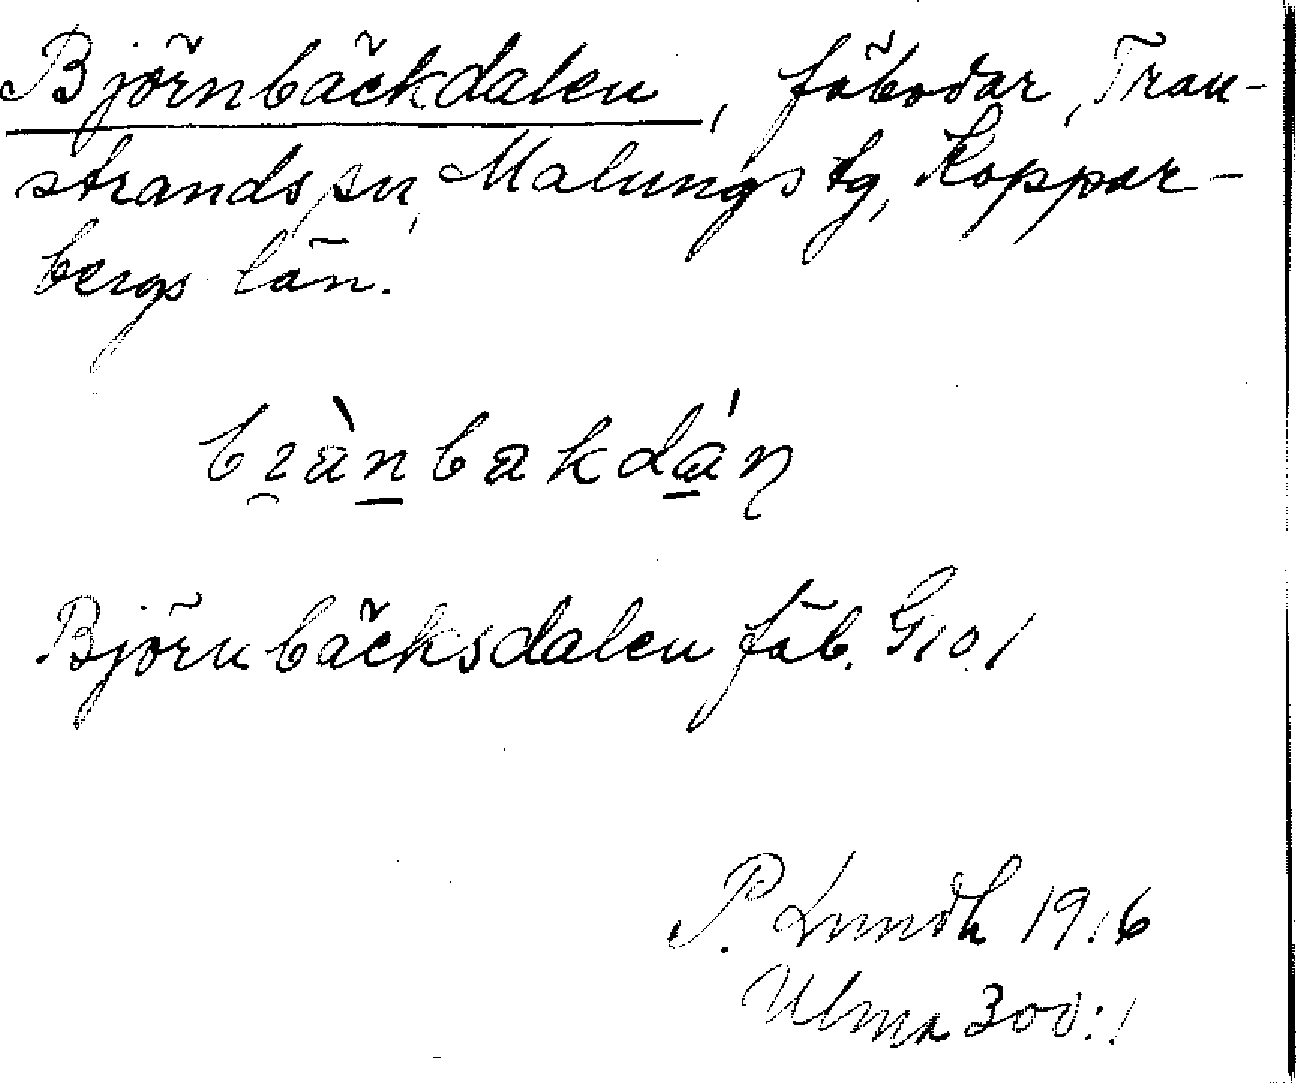 Björnbäckdalen, fäbodar, Tran-
strands sn, Malungs tg, Koppar-
bergs län.
Björnbäcksdalen fäb. G101
P. Lundh 1916
Ulma 300:1